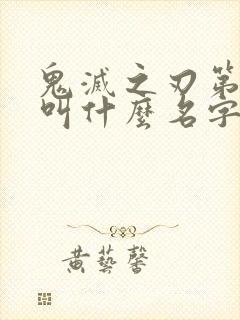 鬼滅之刃第
叫什麼名字
黃藝馨